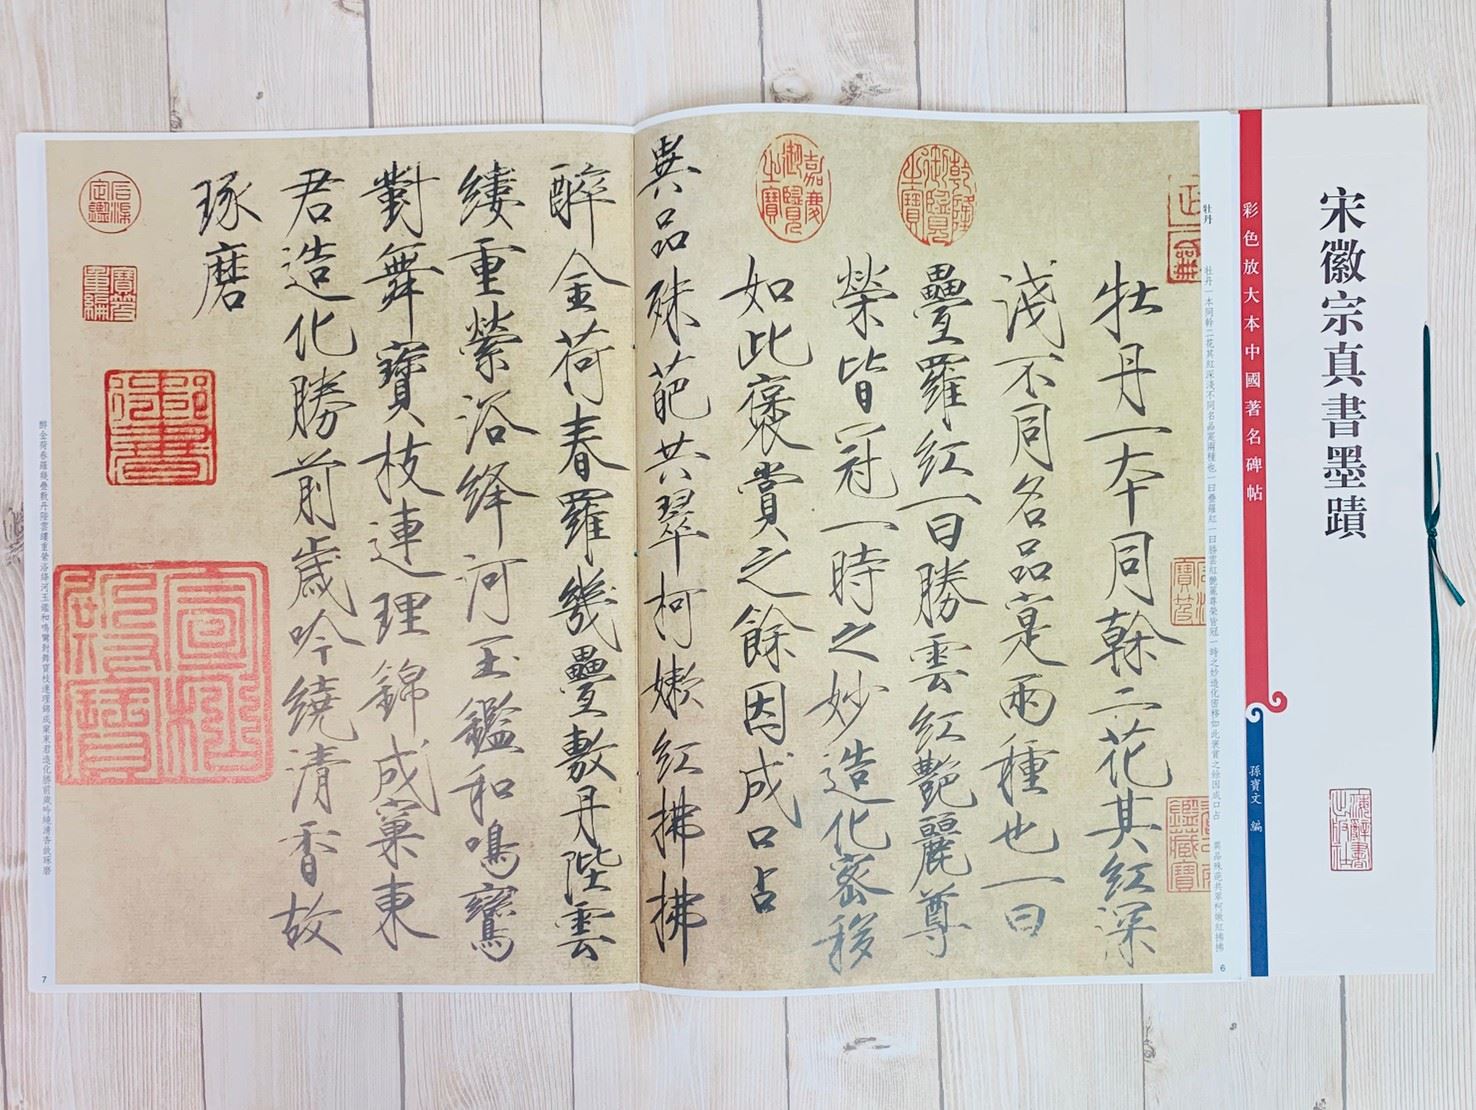 宋徽宗真書墨蹟
彩色放大本中國著名碑帖
孫寶文 編
上海辭書出版社
牡丹
牡丹一本同幹二花其紅深淺不同名品寔兩種也一曰疊羅紅一曰勝雲紅艷麗尊榮皆冠一時之妙造化密移如此褒賞之餘因成口占
異品殊葩共翠柯嫩紅拂拂
牡丹一本同幹二花其紅深
淺不同名品寔兩種也一曰
疊羅紅一曰勝雲紅艷麗尊
榮皆冠一時之妙造化密移
如此褒賞之餘因成口占
異品殊葩共翠柯嫩紅拂拂
醉金荷春羅幾疊敷丹陛雲
縷重縈浴絳河玉鑑和鳴鸞
對舞寶枝連理錦成窠東
君造化勝前歲吟繞清香故
琢磨
乾隆御覽之寶
嘉慶御覽之寶
宣統御覽之寶
御書
醉金荷春羅幾疊敷丹陛雲縷重縈浴絳河玉鑑和鳴鸞對舞寶枝連理錦成窠東君造化勝前歲吟繞清香故琢磨
6
7